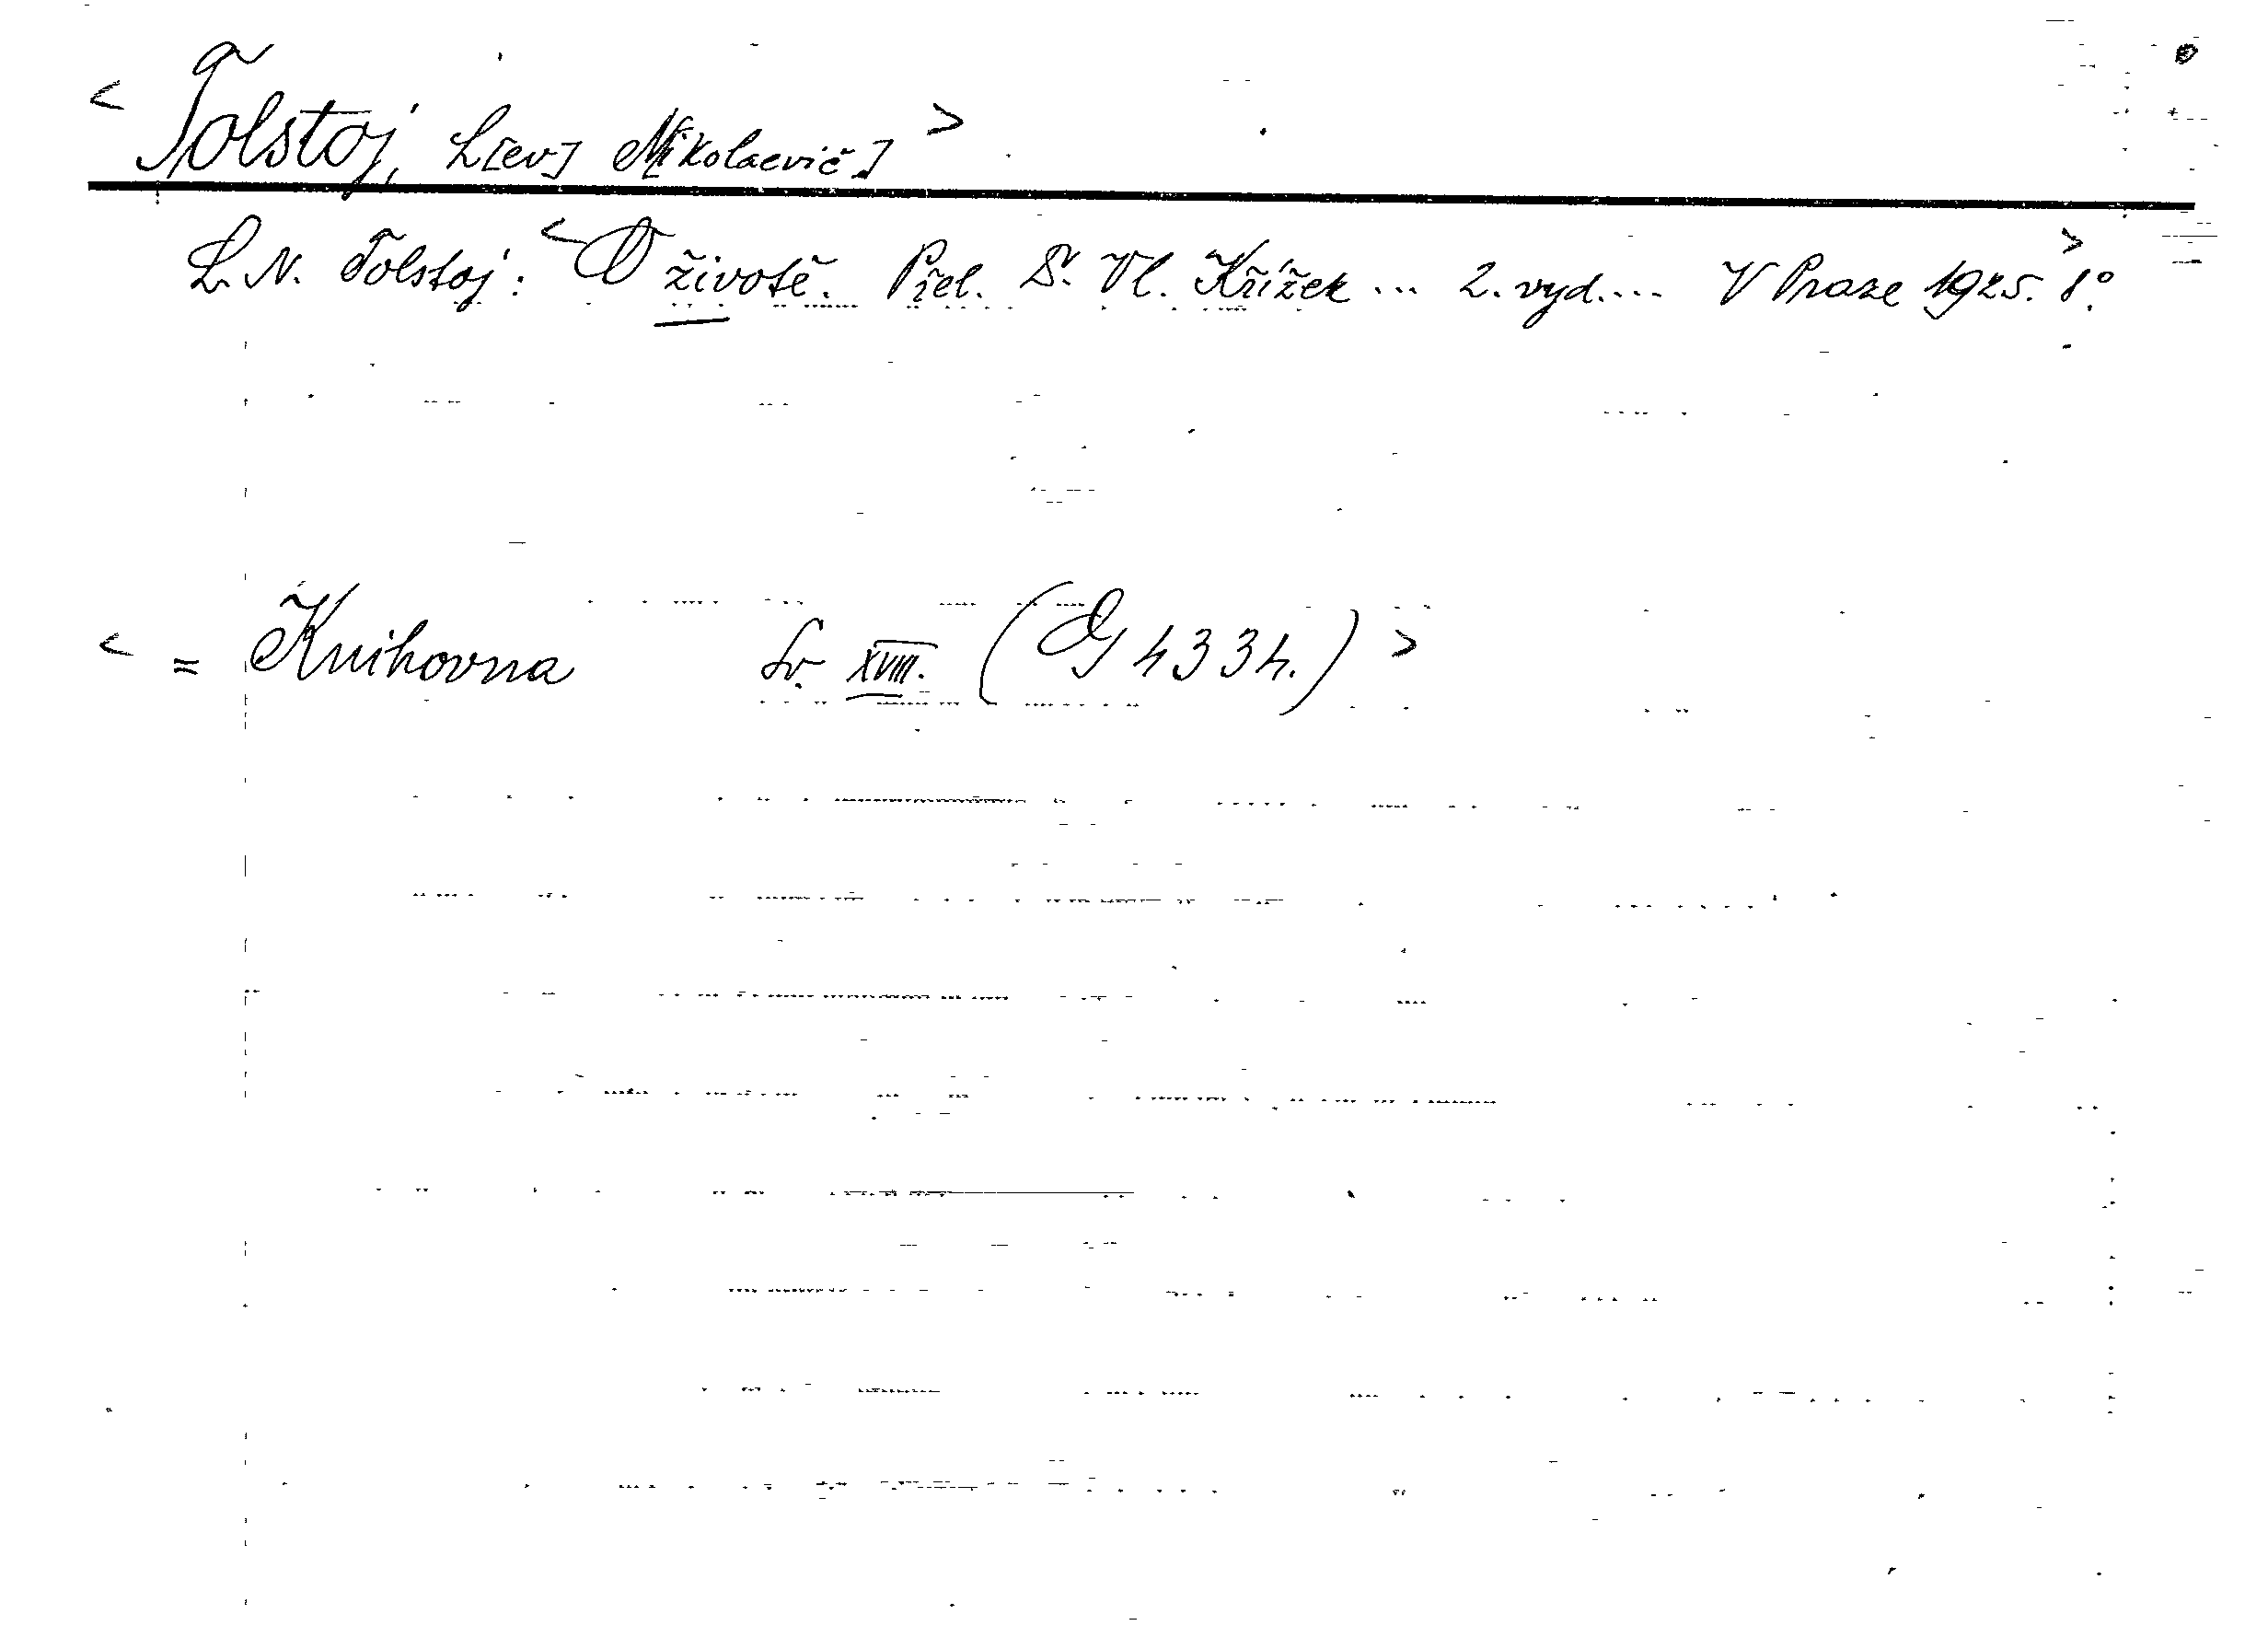 < Tolstoj, L[ev] N[ikolaevič] >
L. N. Tolstoj: < O životě. Přel. Vl. Křížek ... 2. vyd.... V Praze 1925. > 8°.
< = Knihovna Sv. XVIII. (G 4334.) >